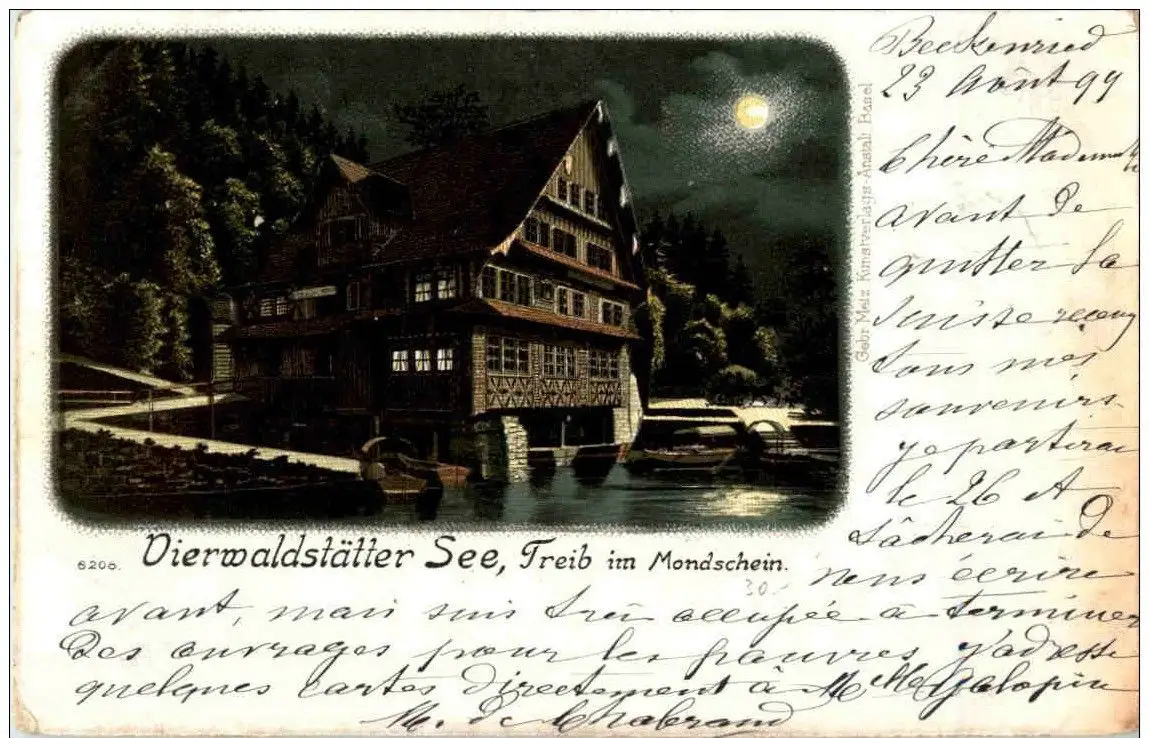 Beckenried
23 Août 99
Chère Madame
avant de
quitter la
Suisse recevez
tous mes
souvenirs.
je partirai
le 26 et
tâcherai de
vous écrire
avant, mais suis très occupée à terminer
des ouvrages pour les pauvres j'adresse
quelques cartes directement à
M. de Chabrand
Gebr. Metz Kunstverlags-Anstalt Basel
6206. Vierwaldstätter See, Treib im Mondschein.
30.-